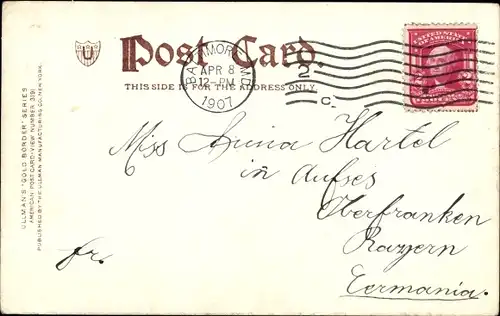 U
Post Card.
THIS SIDE IS FOR THE ADDRESS ONLY.
BALTIMORE, MD.
APR 8
12-PM
1907
2
C.
UNITED STATES
OF AMERICA
ULLMAN'S "GOLD BORDER" SERIES
AMERICAN POST CARD-VIEW NUMBER 3191
PUBLISHED BY THE ULLMAN MANUFACTURING CO. NEW YORK.
Miss Anna Hartel
in Aufses
Oberfranken
Bayern
fr.
Germania.